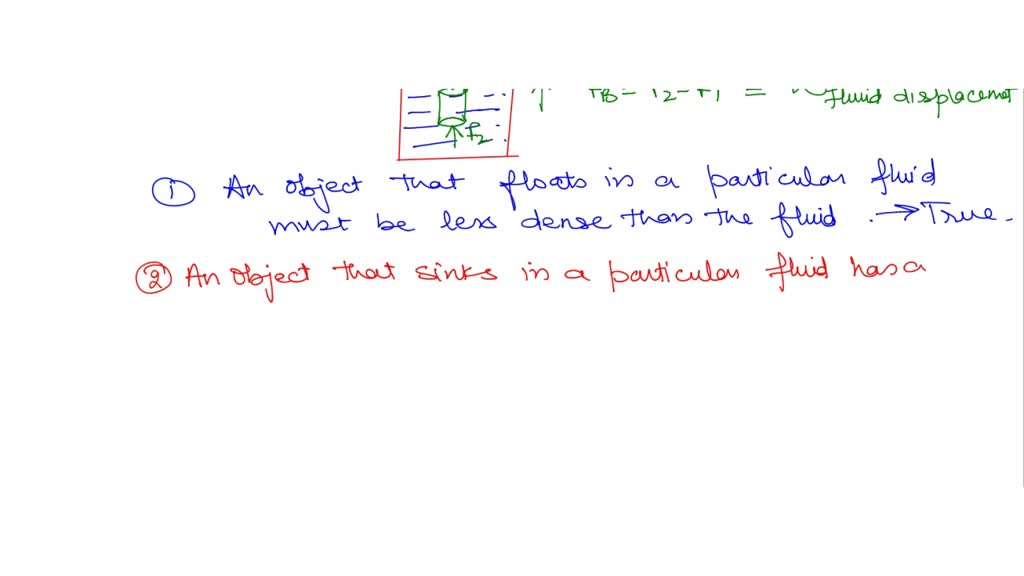 fluid displacement
F2
① An object that floats in a particular fluid
must be less dense than the fluid. → True.
② An object that sinks in a particular fluid has a